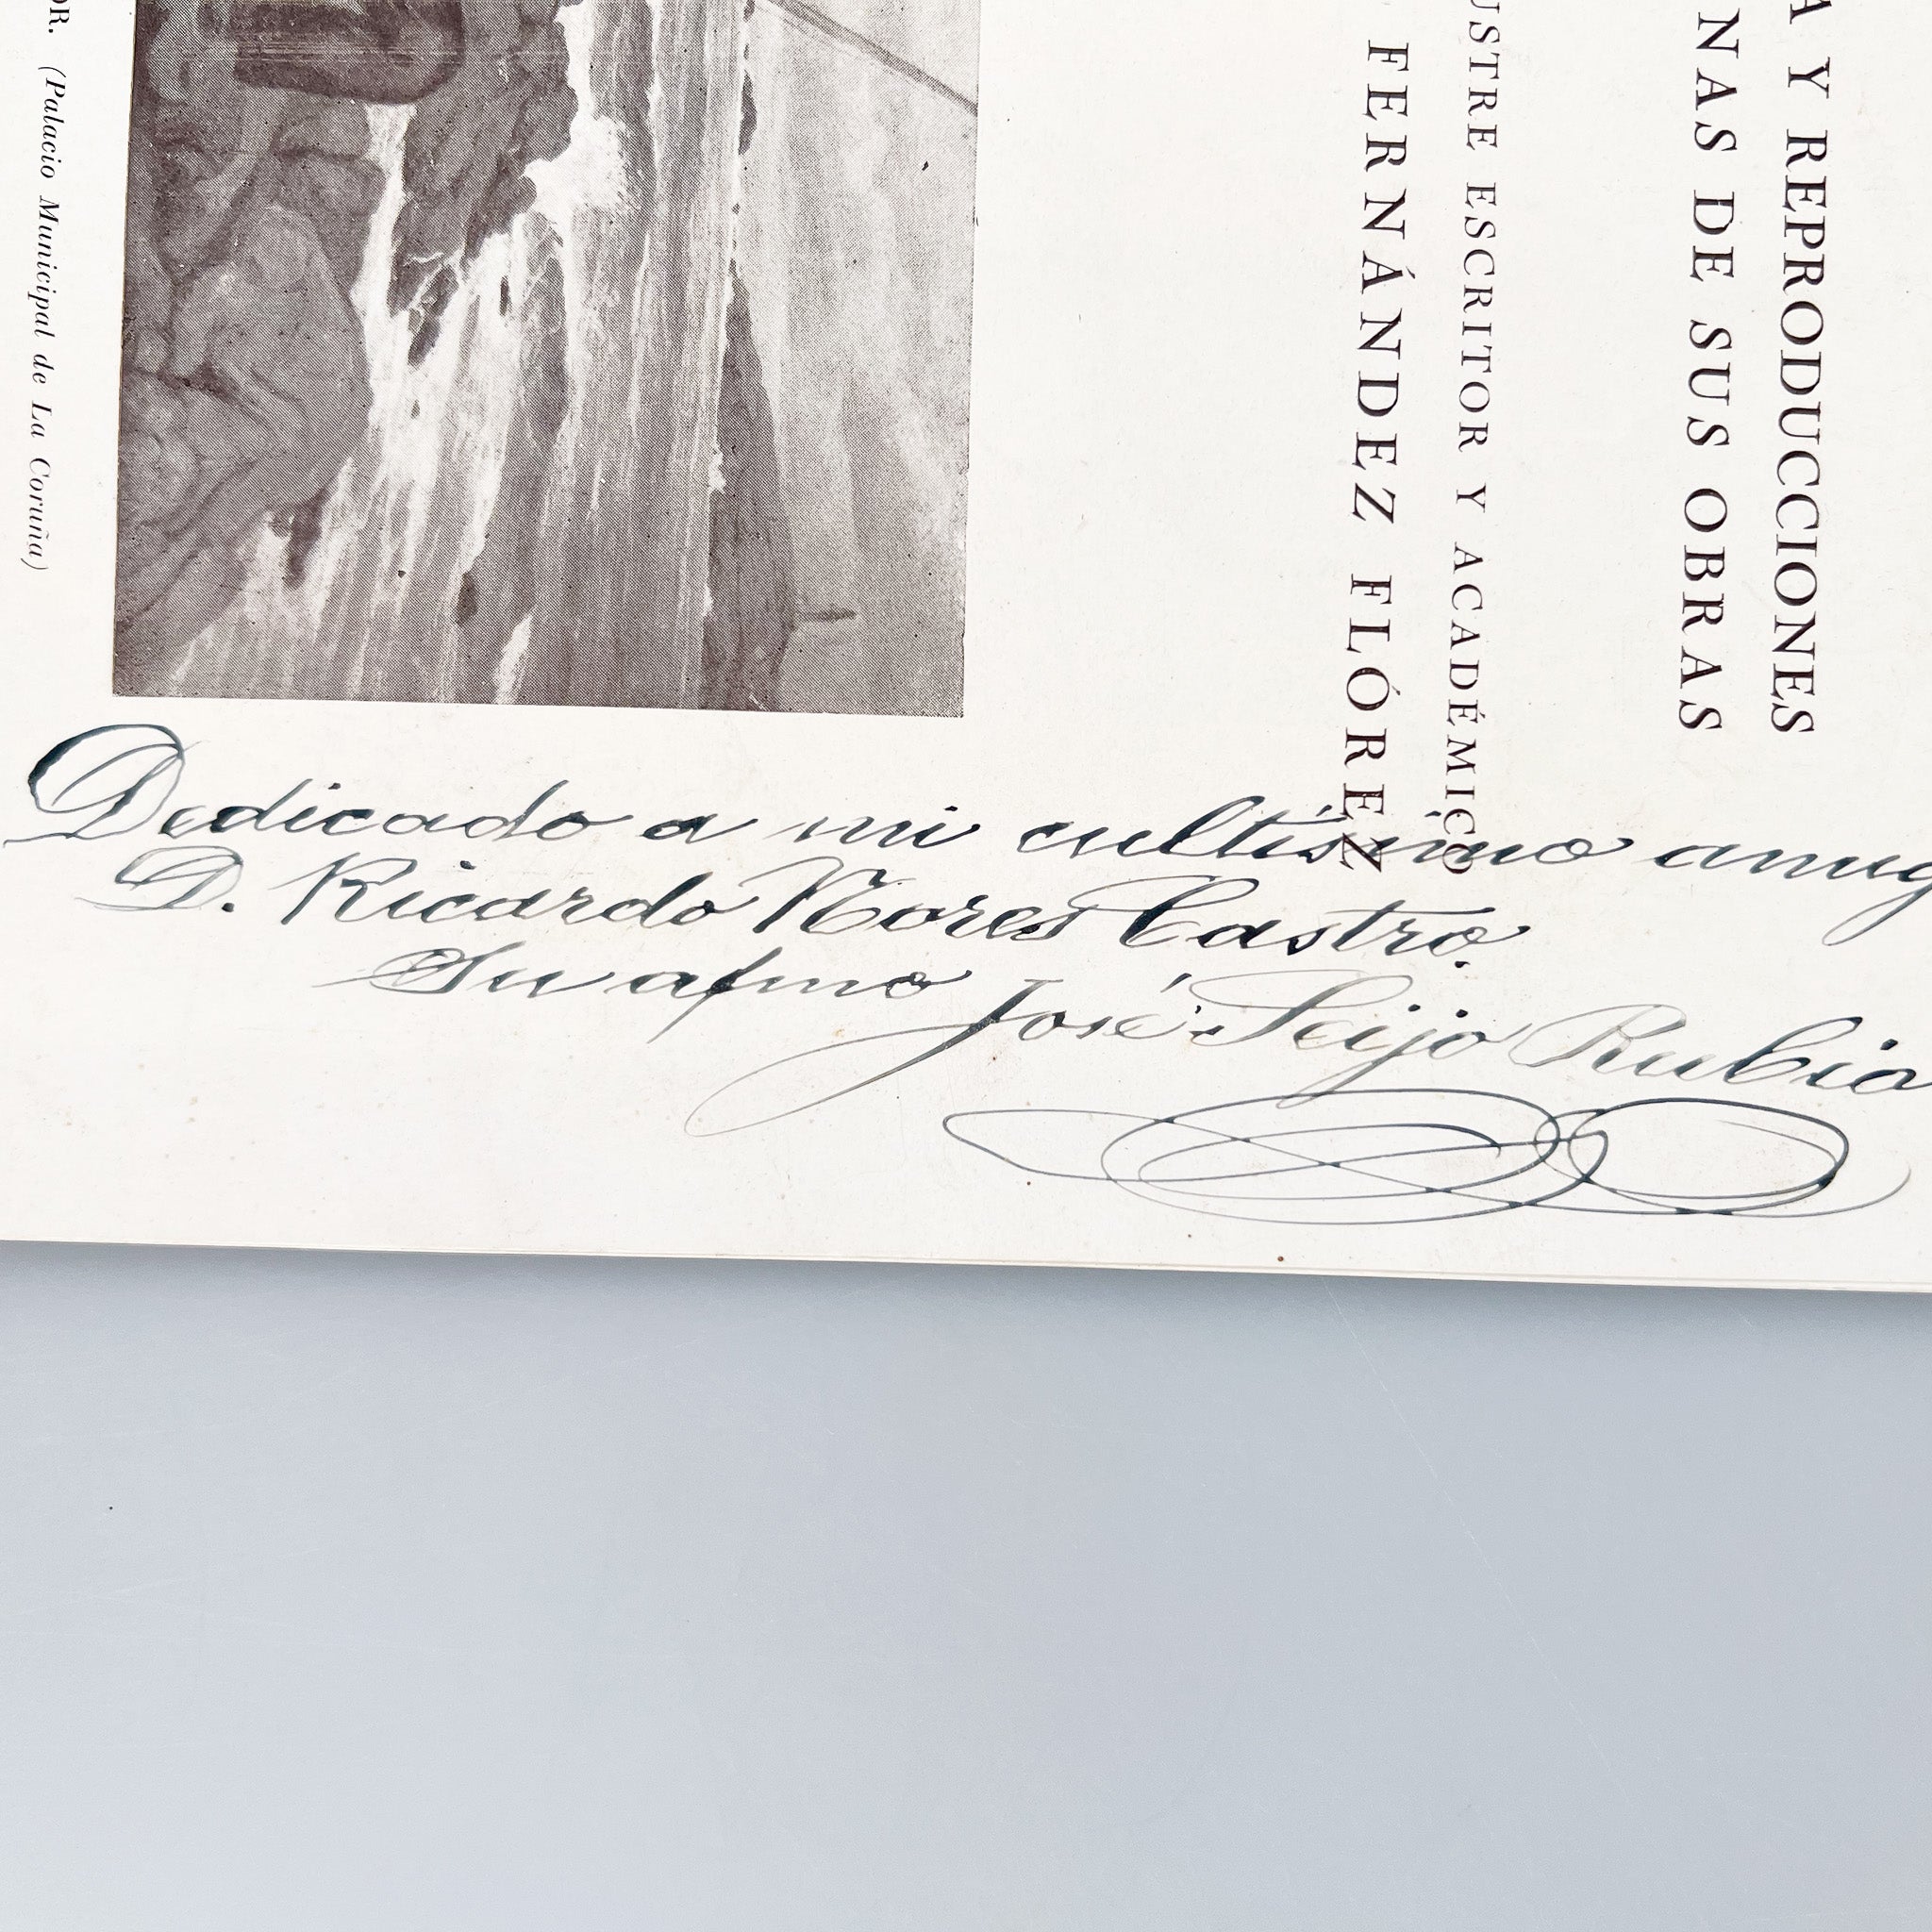 A Y REPRODUCCIONES
NAS DE SUS OBRAS
USTRE ESCRITOR Y ACADÉMICO
FERNÁNDEZ FLÓREZ
OR. (Palacio Municipal de La Coruña)
Dedicado a mi cultísimo amig
D. Ricardo Nores Castro.
Su afmo José Seijo Rubio